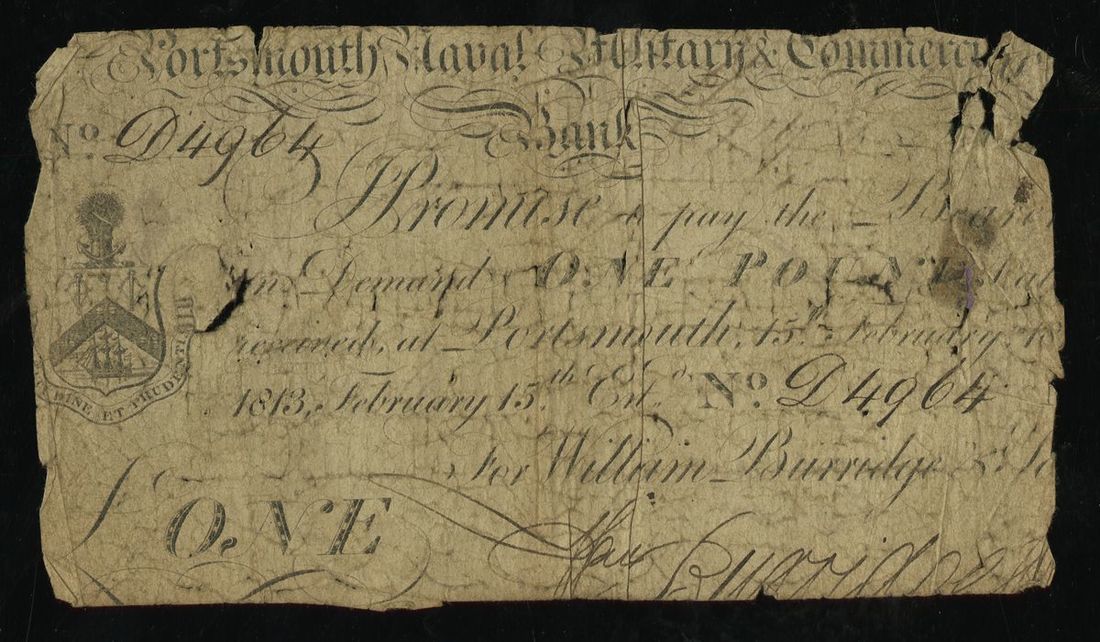 Portsmouth Naval Military & Commerci
Bank
No. D4964
I Promise to pay the Beare
on Demand ONE POUND
received, at Portsmouth, 15th February
1813, February 15th Entd. No. D4964
For William Burridge & So
ONE
Burridge
DINE ET PRUDENTI